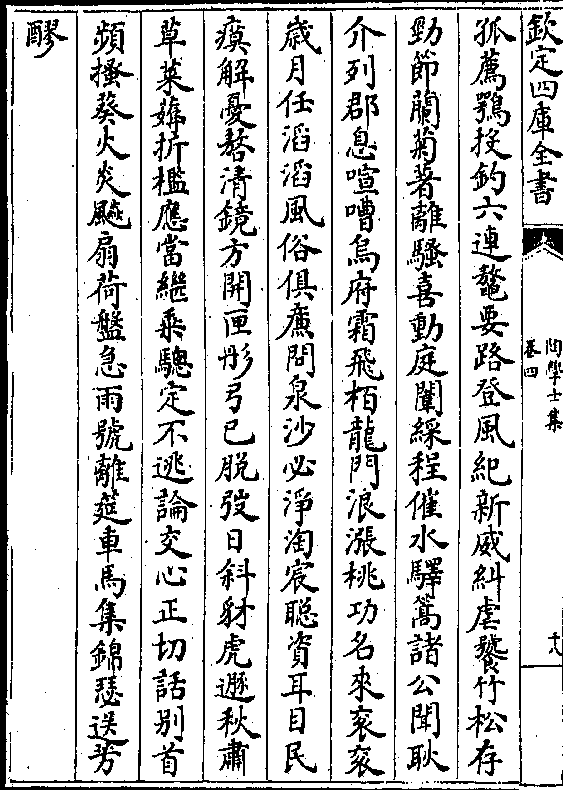 欽定四庫全書
陶學士集
卷四
十八
孤薦鶚投釣六連鼇要路登風紀新威糾虐饕竹松存
勁節蘭菊著離騷喜動庭闈綵程催水驛篙諸公聞耿
介列郡息喧嘈烏府霜飛栢龍門浪漲桃功名來衮衮
歳月任滔滔風俗俱㢘問泉沙必淨淘宸聰資耳目民
瘼解憂嗸清鏡方開匣彤弓已脱弢日斜豺虎遯秋肅
草萊薅折檻應當繼乗驄定不逃論交心正切話别首
頻搔葵火炎飈扇荷盤急雨號離筵車馬集錦瑟送芳
醪